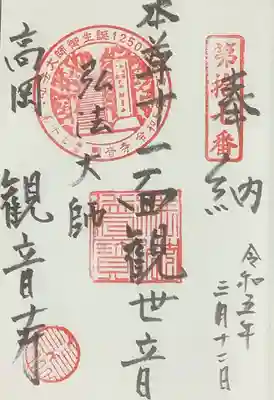 奉納
令和五年
三月十二日
本尊十一面観世音
弘法大師
高岡
観音寺
大師御生誕1250